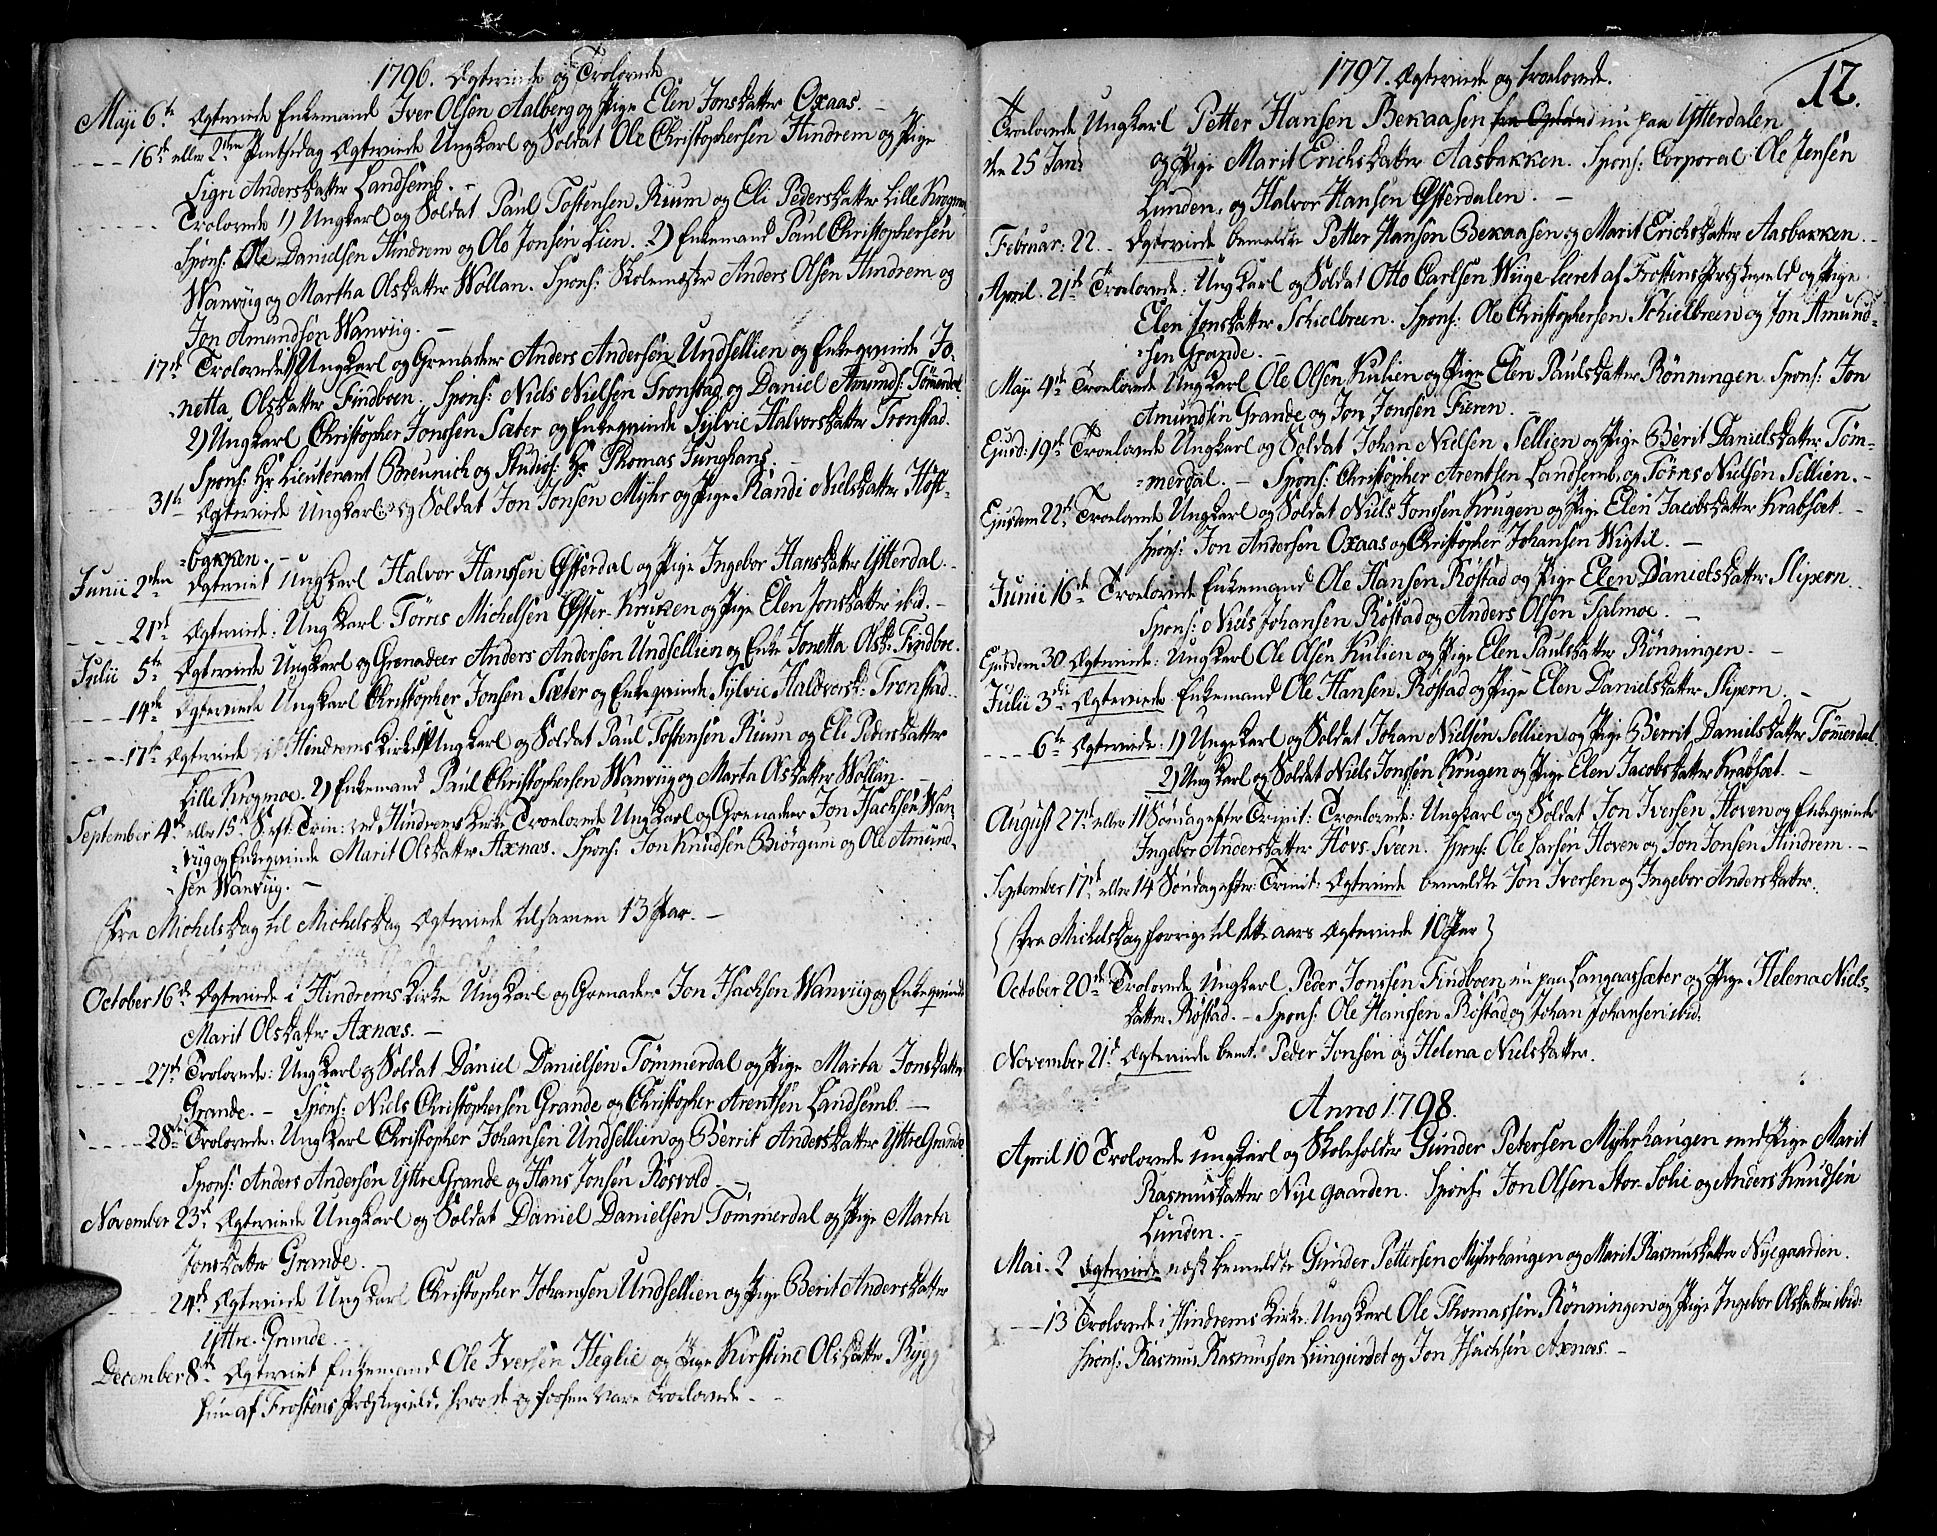 1796. Ægteviede og Trolovede
Maji 6te Ægteviede Enkemand Iver Olsen Aalberg og Pige Elen Jonsdatter Oxaas. -
- - - - 16de eller 2den Pintsedag Ægteviede Ungkarl og Soldat Ole Christophersen Hindrem og Pige
Sigri Andersdatter Landsemb. -
- - - - - Trolovede 1) Ungkarl og Soldat Paul Tostensen Rium og Eli Pedersdatter Lille Krogmoe
Spons: Ole Danielsen Hindrem og Ole Jonsen Lien. 2) Enkemand Paul Christophersen
Wanviig og Martha Olsdatter Wollan. Spons: Skolemester Anders Olsen Hindrem og
Jon Amundsen Wanviig. -
- - - - 17de Trolovede 1) Ungkarl og Grenadeer Anders Andersen Undsellien og Enkeqvinde Jo-
-netta Olsdatter Findboen. Spons: Niels Nielsen Tronstad og Daniel Amunds: Tømerdal.
2) Ungkarl Christopher Jonssen Sæter og Enkeqvinde Sylvie Halvorsdatter Tronstad.
Spons: Hr Lieutenant Breunich og Studios: Hr Thomas Junghans. -
31te Ægteviede Ungkarl og Soldat Jon Jonsen Myhr og Pige Randi Nielsdatter Høst-
-bakken. -
Junii 2den Ægteviet Ungkarl Halvor Hanssen Østerdal og Pige Ingebor Hansdatter Ytterdal. -
- - - - 21de Ægteviede: Ungkarl Tørris Michelsen Øster-Kruken og Pige Elen Jonsdatter ibid. -
Julii 5te Ægteviede Ungkarl og Grenadeer Anders Andersen Undsellien og Enke Jonetta Olsd: Findboe.
- - - - 14de Ægteviede Ungkarl Christopher Jonsen Sæter og Enkeqvinde Sylvie Haldvorsd: Tronstad.
- - - - 17de Ægteviede i Hindrems Kirke 1) Ungkarl og Soldat Paul Tostensen Rium og Eli Pedersdatter
Lille Krogmoe. 2) Enkemand Paul Christophersen Wanviig og Marta Olsdatter Wollan. -
September 4de eller 15de S. eft: Trin: ved Hindrems Kirke Trolovede Ungkarl og Grenadeer Jon Isachsen Wan-
-viig og Enkeqvinde Marit Olsdatter Axnæs. Spons: Jon Knudsen Biørgum og Ole Amund-
-sen Wanviig. -
Fra Michelsdag til Michelsdag Ægteviede tilsamen 13 Par. -
October 16de Ægteviede i Hindrems Kirke Ungkarl og Grenadeer Jon Isachsen Wanviig og Enkeqvinde
Marit Olsdatter Axnæs. -
- - - - - 27de Trolovede: Ungkarl og Soldat Daniel Danielsen Tømmerdal og Pige Marta Jonsdatter
Grande. - Spons: Niels Christophersen Grande og Christopher Arentsen Landsemb. -
- - - - - 28de Trolovede: Ungkarl Christopher Johansen Undsellien og Berrit Andersdatter Yttre Grande
Spons: Anders Andersen Yttre Grande og Hans Jonsen Rosvold. -
November 23de Ægteviede Ungkarl og Soldat Daniel Danielsen Tømmerdal og Pige Marta
Jonsdatter Grande. -
24de Ægteviede Ungkarl Christopher Johansen Undsellien og Pige Berit Andersdatter
Yttre-Grande. -
December 8de Ægteviet Enkemand Ole Iversen Heglie og Pige Kirstine Olsdatter Rygg
hun af Frostens Præstegield, hvor de og forhen vare Trolovede. -
1797. Ægteviede og Troelovede.
12.
Troelovede Ungkarl Petter Hansen Bekaasen nu paa Ytterdalen
den 25 Jan: og Pige Marit Erichsdatter Aasbakken. Spons: Corporal Ole Jensen
Lunden, og Halvor Hansen Østerdalen. -
Februar: 22. - Ægteviede bemeldte Petter Hansen Bekaasen og Marit Erichsdatter Aasbakken. -
April. 21de Troelovede: Ungkarl og Soldat Otto Carlsen Wiige-leeret af Frostens Præstegield og Pige
Elen Jonsdatter Schielbreen. Spons: Ole Christophersen Schielbreen og Jon Amund-
-sen Grande. -
Maji 4de Troelovede Ungkarl Ole Olsen Kulien og Pige Elen Paulsdatter Rønningen. Spons: Jon
Amundsen Grande og Jon Jonssen Fieren. -
Ejusd: 19de Troelovede Ungkarl og Soldat Johan Nielsen Sellien og Pige Berit Danielsdatter Tøm-
-merdal. - Spons: Christopher Arentsen Landsemb og Tørris Nielsen Sellien. -
Ejusdem 22de Troelovede Ungkarl og Soldat Niels Jonssen Krugen og Pige Elen Jacobsdatter Krabsæt. -
Spons: Jon Andersen Oxaas og Christopher Johansen Wigtil. -
Junii 16de Troelovede Enkemand Ole Hansen Røstad og Pige Elen Danielsdatter Slipern.
Spons: Niels Johansen Røstad og Anders Olsen Salmoe. -
Ejusdem 30 Ægteviede: Ungkarl Ole Olsen Kulien og Pige Elen Paulsdatter Rønningen. -
Julii 3die Ægteviede Enkemand Ole Hansen Røstad og Pige Elen Danielsdatter Slipern. -
- - - 6te Ægteviede: 1) Ungkarl og Soldat Johan Nielsen Sellien og Pige Berrit Danielsdatter Tømerdal.
2) Ungkarl og Soldat Niels Jonssen Krugen og Pige Elen Jacobsdatter Krabsæt. -
August 27de eller 11 Søndag efter Trinit: Troelovede: Ungkarl og Soldat Jon Iversen Hoven og Enkeqvinde
Ingebor Andersdatter Hovs-Sveen. Spons: Ole Larsen Hoven og Jon Jonsen Hindrem. -
September 17de eller 14 Søndag efter Trinit: Ægteviede bemeldte Jon Iversen og Ingebor Andersdatter.
Fra Michelsdag forrige til dette aars Ægteviede 10 Par
October 20de Trolovede Ungkarl Peder Jonssen Findboen nu paa Langaassæter og Pige Helena Niels-
datter Røstad. - Spons: Ole Hanssen Røstad og Johan Johansen ibid:
November 21de Ægteviede bemt. Peder Jonsen og Helena Nielsdatter.
Anno 1798.
April 10 Trolovede Ungkarl og Skoleholder Gunder Petersen Myhrhaugen med Pige Marit
Rasmusdatter Nyegaarden. Spons: Jon Olsen Stor-Solie og Anders Knudsen
Lunden. -
Mai - 2 Ægteviede næst bemeldte Gunder Pettersen Myhrhaugen og Marit Rasmusdatter Nyegaarden.
- - - 13 Trolovede i Hindrems Kirke: Ungkarl Ole Thomassen Rønningen og Pige Ingebor Olsdatter ibid:
Spons: Rasmus Rasmussen Lungierdet og Jon Isachsen Axnæs. -